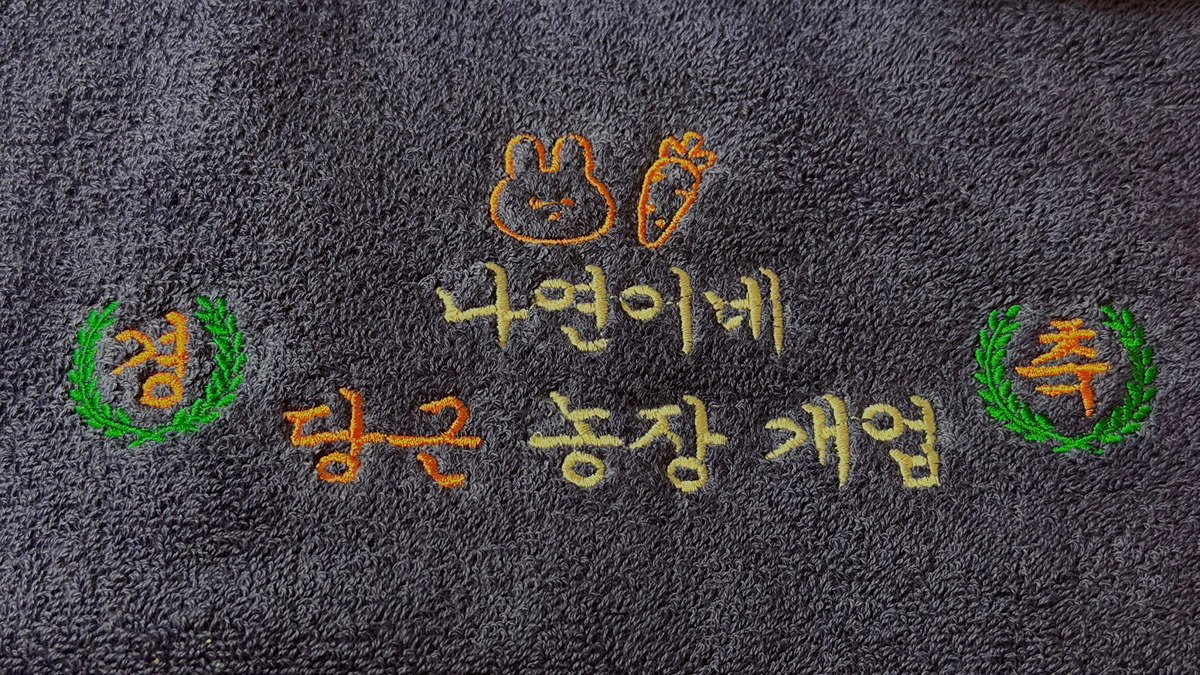 나연이네
경 축
당근 농장 개업